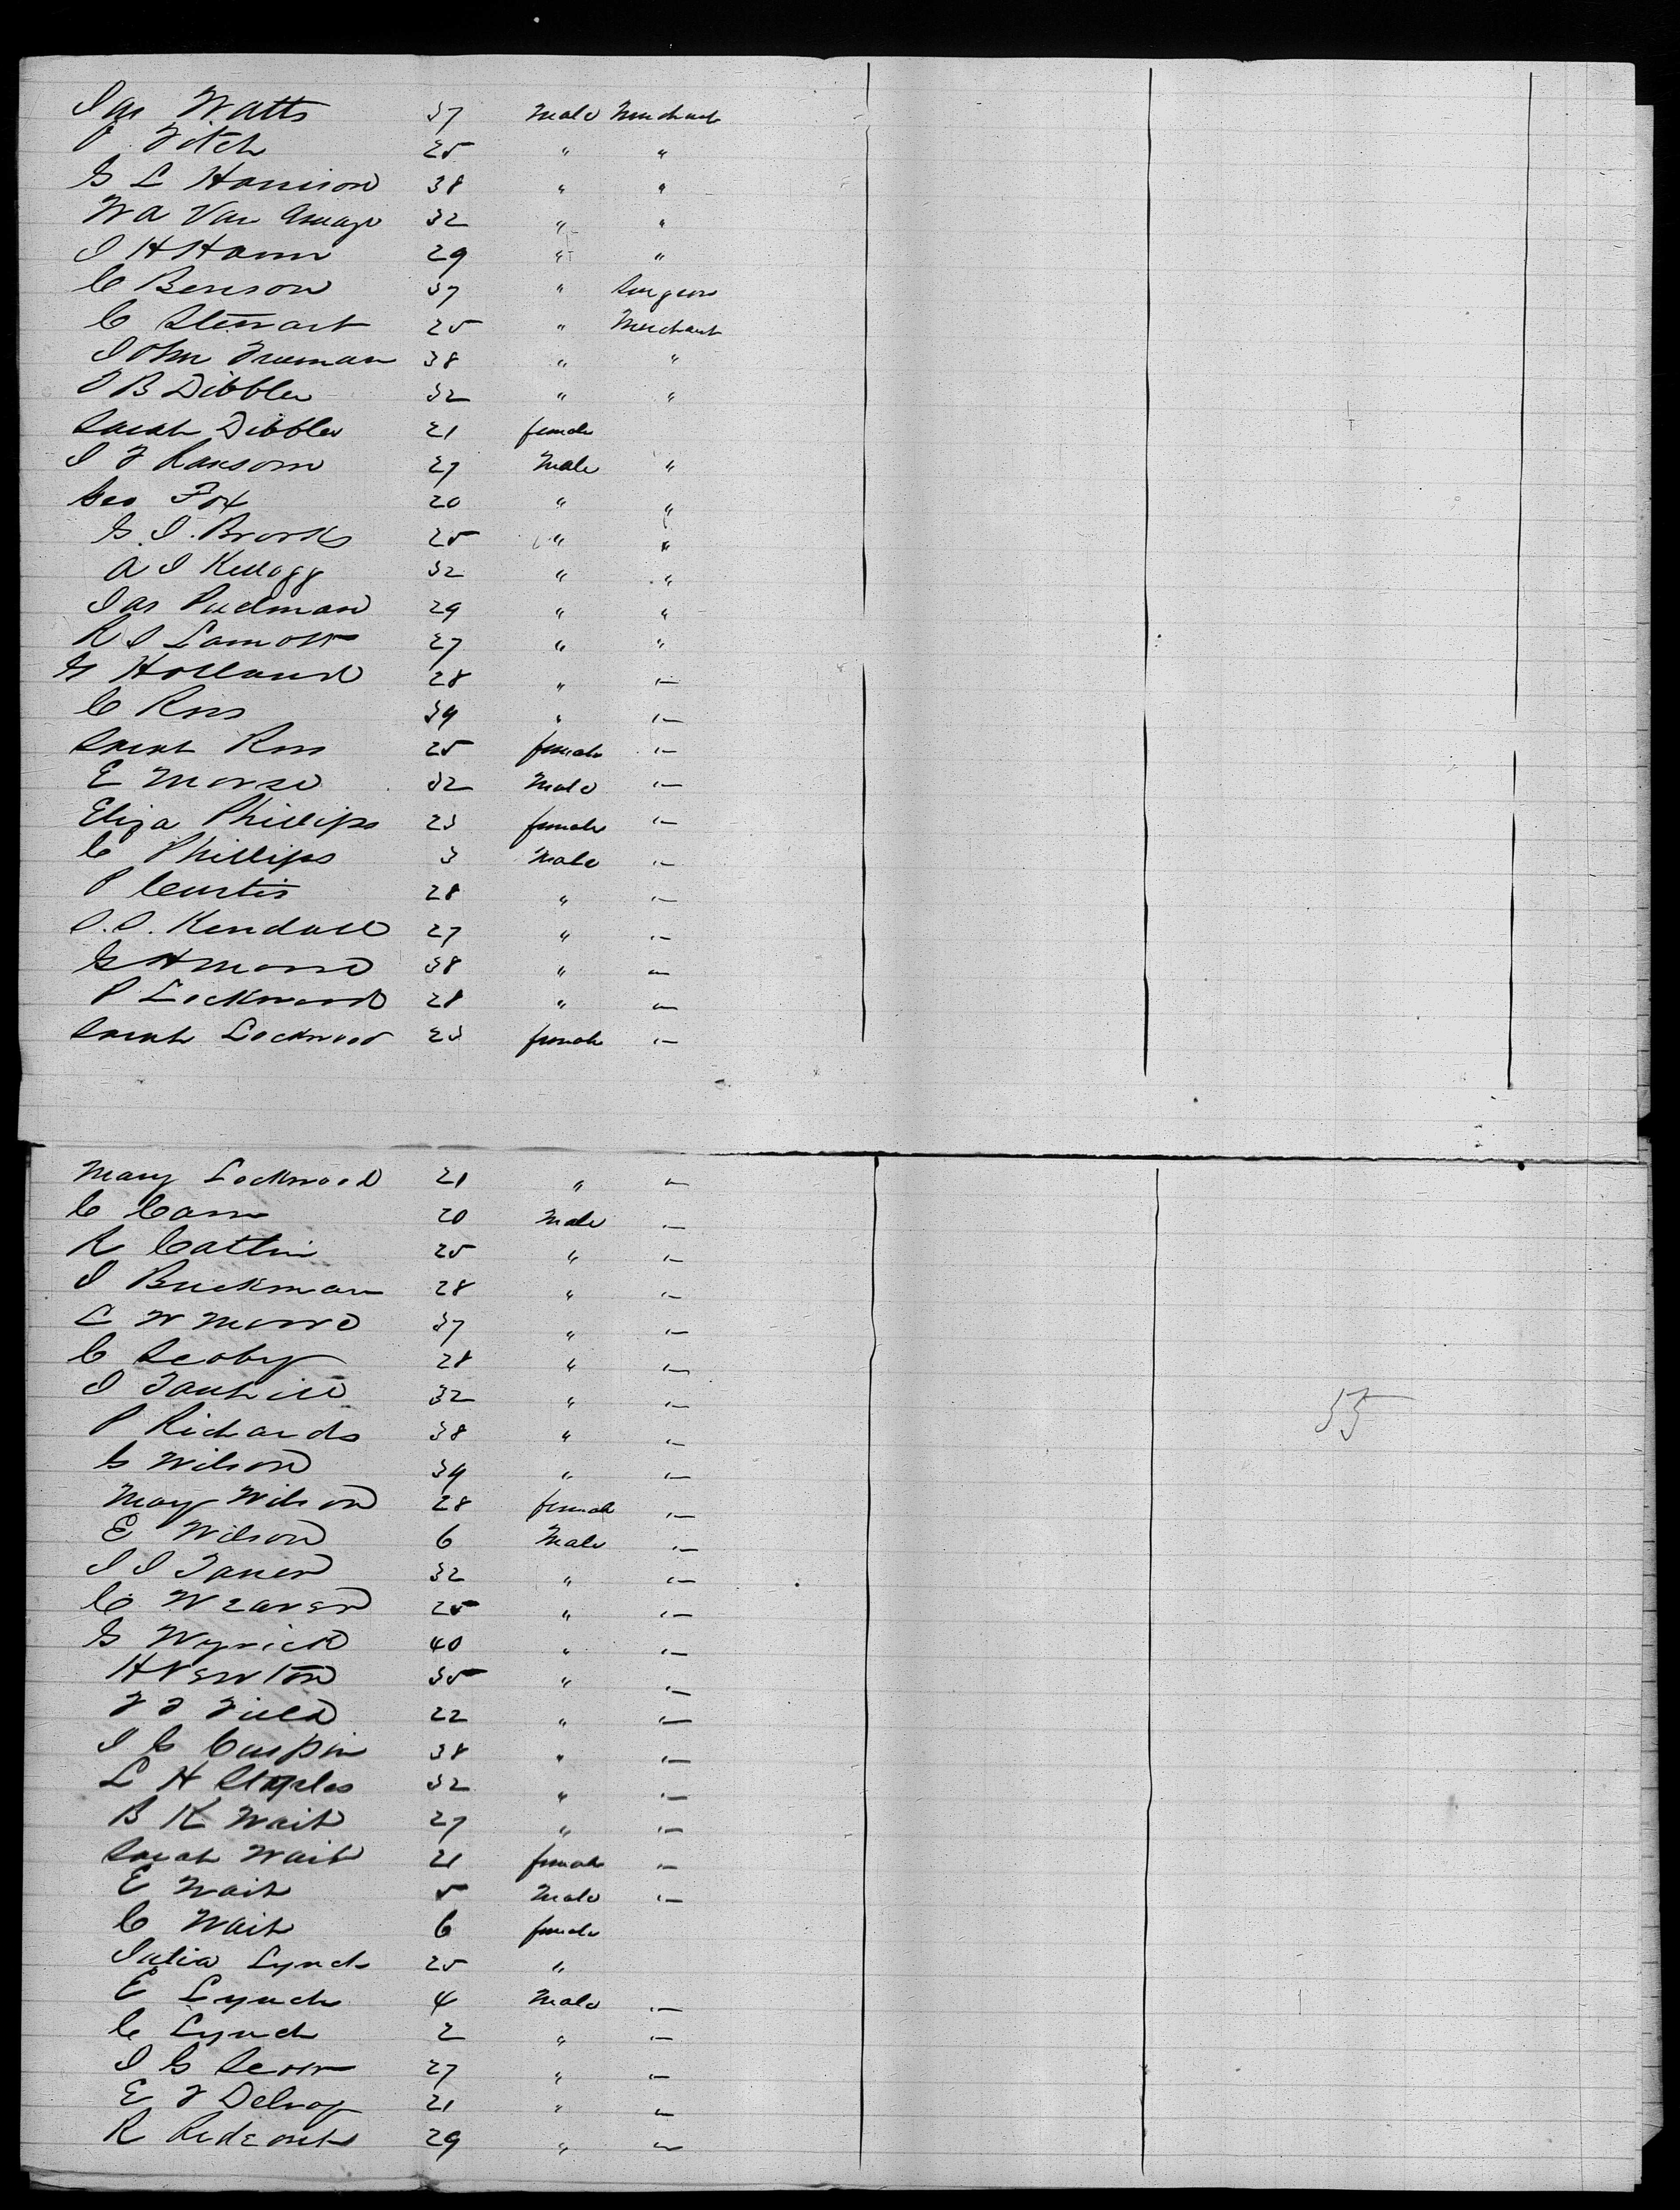 Jas Watts 37 Male Merchant
J Fitch 25 " "
G L Harrison 38 " "
W A Van 32 " "
J H Hann 29 " "
C Benson 37 " Surgeon
C Stewart 25 " Merchant
John Freeman 38 " "
J B Dibblee 32 " "
Sarah Dibblee 21 female
J F Ransom 27 Male "
Geo Fox 20 " "
G. J. Brooks 25 " "
A J Kellogg 32 " "
Jas Pudman 29 " "
R J Lamott 27 " "
G Holland 28 " "
C Ross 34 " "
Sarah Ross 25 female "
E Morse 32 Male "
Eliza Phillips 23 female "
C Phillips 3 Male "
P Curtis 28 " "
J. J. Kendall 27 " "
G H Morse 38 " "
P Lockwood 28 " "
Sarah Lockwood 23 female "
Mary Lockwood 21 " "
C Carr 20 Male "
R Catlin 25 " "
J Brickman 28 " "
L W Morse 37 " "
C Scoby 28 " "
J Tanhill 32 " "
P Richards 38 " "
G Wilson 34 " "
Mary Wilson 28 female "
E Wilson 6 Male "
J J 32 " "
C Weaver 25 " "
G Wyrick 40 " "
H Newton 35 " "
F F Field 22 " "
J G 38 " "
L H Staples 32 " "
B K Wait 27 " "
Sarah Wait 21 female "
E Wait 5 Male "
C Wait 6 female
Julia Lynch 25 "
E Lynch 4 Male "
C Lynch 2 " "
J G Scott 27 " "
E F Delroy 21 " "
R Rideout 29 " "
55